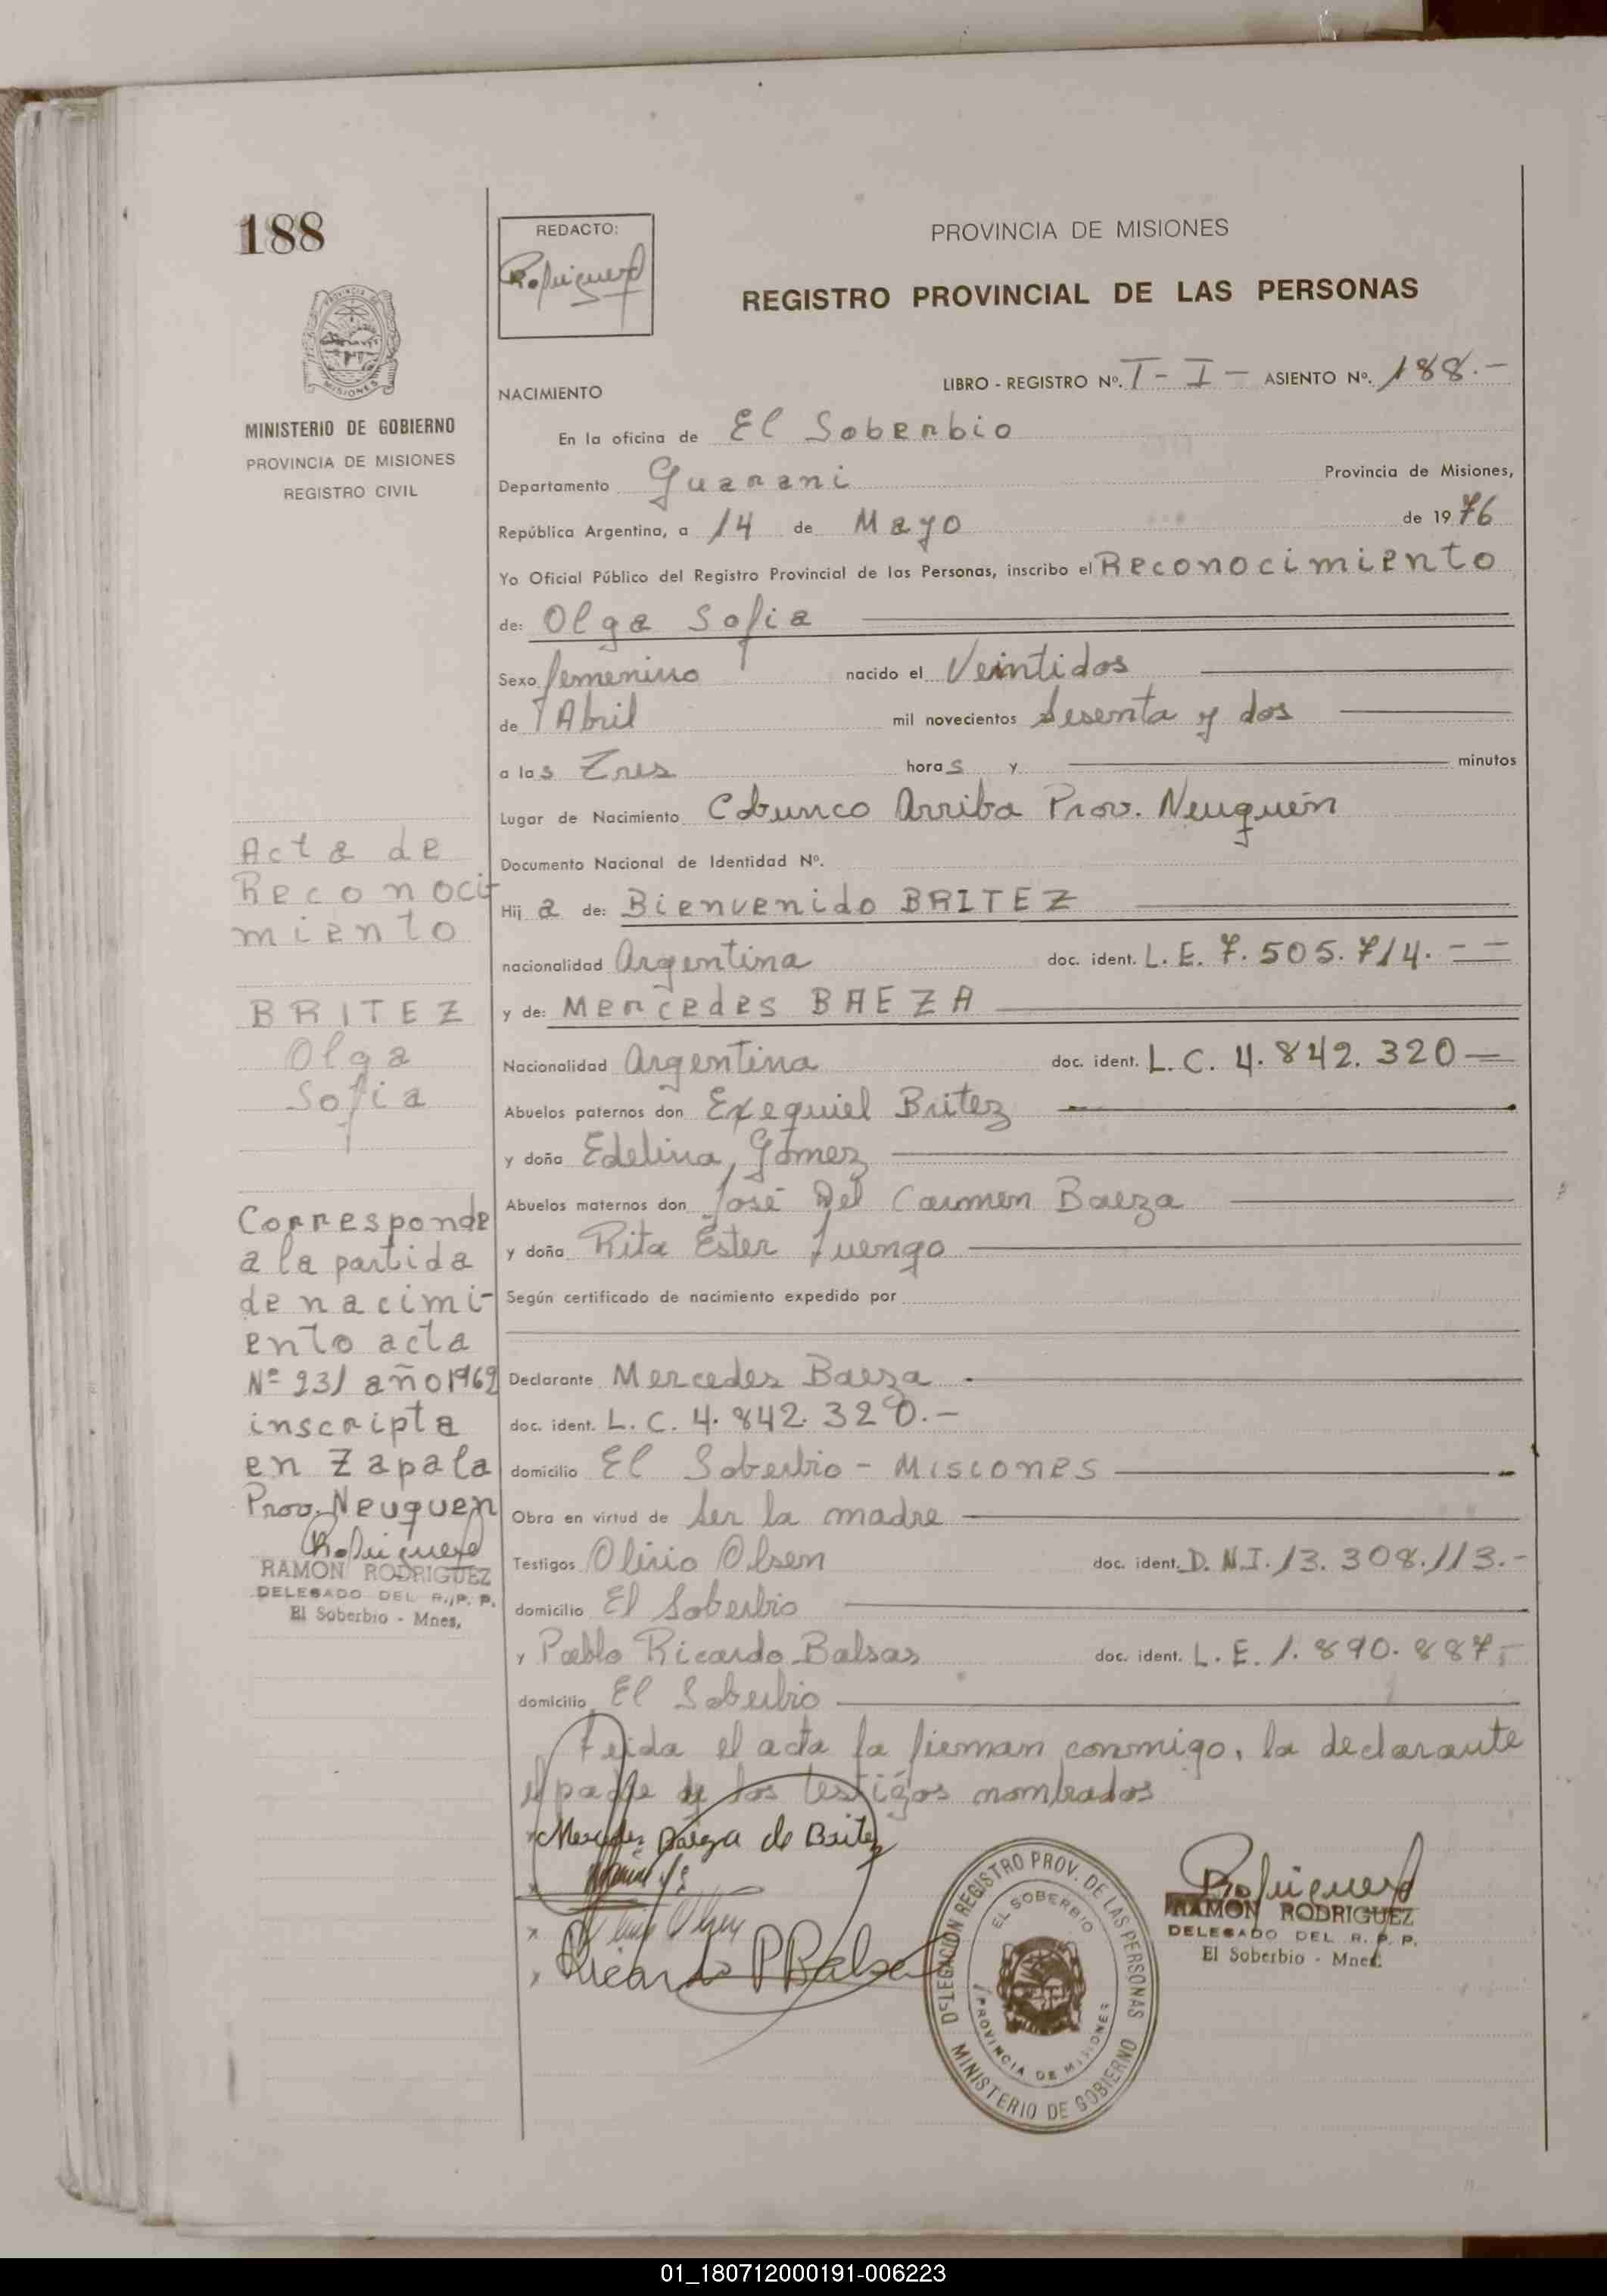 188
REDACTO:
PROVINCIA DE MISIONES
REGISTRO PROVINCIAL DE LAS PERSONAS
PROVINCIA DE
MISIONES
MINISTERIO DE GOBIERNO
PROVINCIA DE MISIONES
REGISTRO CIVIL
NACIMIENTO
LIBRO - REGISTRO Nº. T - I - ASIENTO Nº. 188.-
En la oficina de El Soberbio
Departamento Guarani Provincia de Misiones,
República Argentina, a 14 de Mayo de 1976
Yo Oficial Público del Registro Provincial de las Personas, inscribo el Reconocimiento
de: Olga Sofia
Sexo femenino nacido el Veintidos
de Abril mil novecientos sesenta y dos
a las Tres horas y minutos
Lugar de Nacimiento Cobunco Arriba Prov. Neuquén
Documento Nacional de Identidad Nº.
Hij a de: Bienvenido BRITEZ
nacionalidad Argentina doc. ident. L. E. 7.505.714.- -
y de: Mercedes BAEZA
Nacionalidad Argentina doc. ident. L. C. 4.842.320-
Abuelos paternos don Exequiel Britez
y doña Edelina, Gómez
Abuelos maternos don José Del Carmen Baeza
y doña Rita Ester Luengo
Según certificado de nacimiento expedido por
Declarante Mercedes Baeza
doc. ident. L. C. 4.842.320.-
domicilio El Soberbio - Misiones
Obra en virtud de ser la madre
Testigos Olirio Olsen doc. ident. D. N.I. 13.308.113.-
domicilio El Soberbio
y Pablo Ricardo Balsas doc. ident. L. E. 1.890.887,-
domicilio El Soberbio
Leida el acta la firman conmigo, la declarante
el padre y los testigos nombrados
Mercedes Baeza de Britez
Ricardo P Balsa
Acta de
Reconoci-
miento
BRITEZ
Olga
Sofia
Corresponde
a la partida
de nacimi-
ento acta
Nº 231 año 1962
inscripta
en Zapala
Prov. Neuquen
RAMON RODRIGUEZ
DELEGADO DEL R. P. P.
El Soberbio - Mnes.
DELEGACION REGISTRO PROV. DE LAS PERSONAS
EL SOBERBIO
PROVINCIA DE MISIONES
MINISTERIO DE GOBIERNO
RAMON RODRIGUEZ
DELEGADO DEL R. P. P.
El Soberbio - Mnes.
01_180712000191-006223